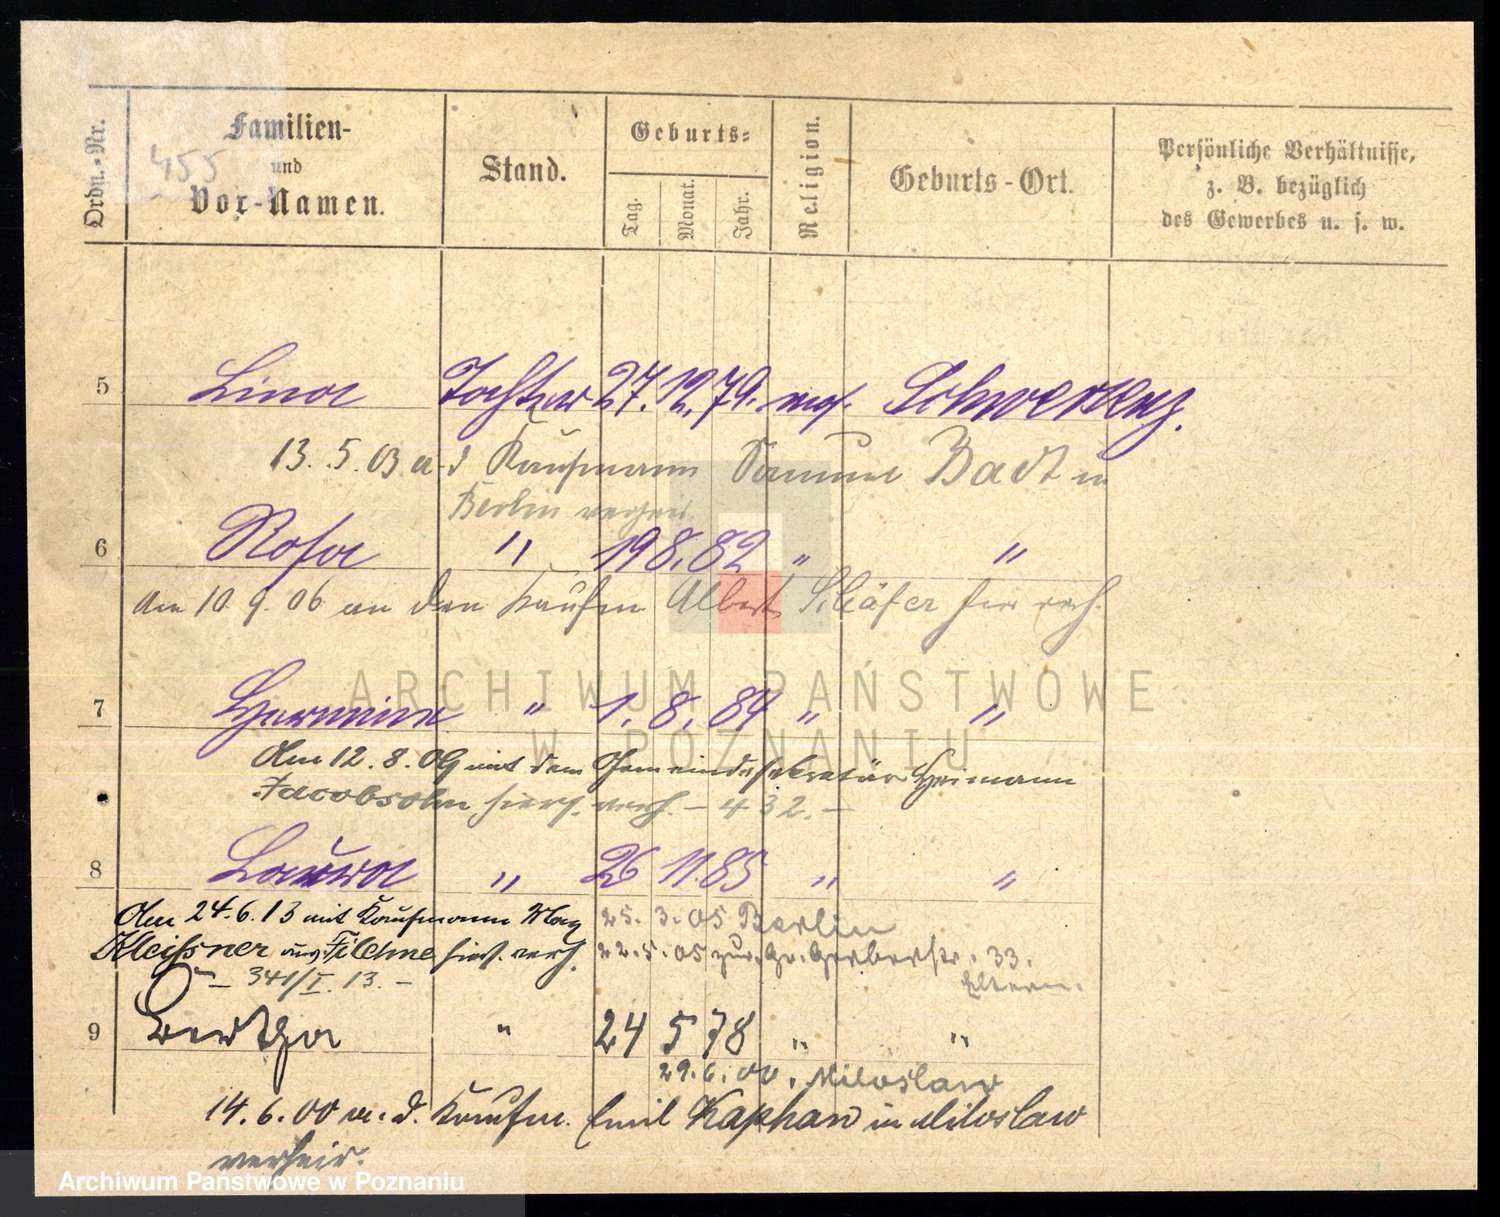 455
Ordn.-Nr.
Familien-
und
Vor-Namen.
Stand.
Geburts-
Tag.
Monat.
Jahr.
Religion.
Geburts-Ort.
Persönliche Verhältnisse,
z. B. bezüglich
des Gewerbes u. s. w.
5 Lina Tochter 27. 12. 79. mos. Schwersenz.
13. 5. 03 a. d Kaufmann Samuel Badt in
Berlin
6 Rosa " 19 8. 82 " "
Am 10. 9. 06 an den Kaufm Albert Schäfer hier verh.
7 Hermine " 1. 8. 84 " "
Am 12. 8. 09 mit dem Gemeindesekretär Heimann
Jacobsohn hiers. verh. – 432. –
8 Laura " 26 11 85 " "
Am 24. 6. 13 mit Kaufmann Max 25. 3. 05 Berlin
Kleissner aus Filehne hiers. verh. 22. 5. 05 zur. Gr. Gerberstr. 33.
– 341/I. 13. – Eltern.
9 Bertha " 24 5 78 " "
29. 6. 00. Miloslaw
14. 6. 00 a. d. Kaufm. Emil Kaphan in Miloslaw
verheir.
ARCHIWUM PAŃSTWOWE
W POZNANIU
Archiwum Państwowe w Poznaniu